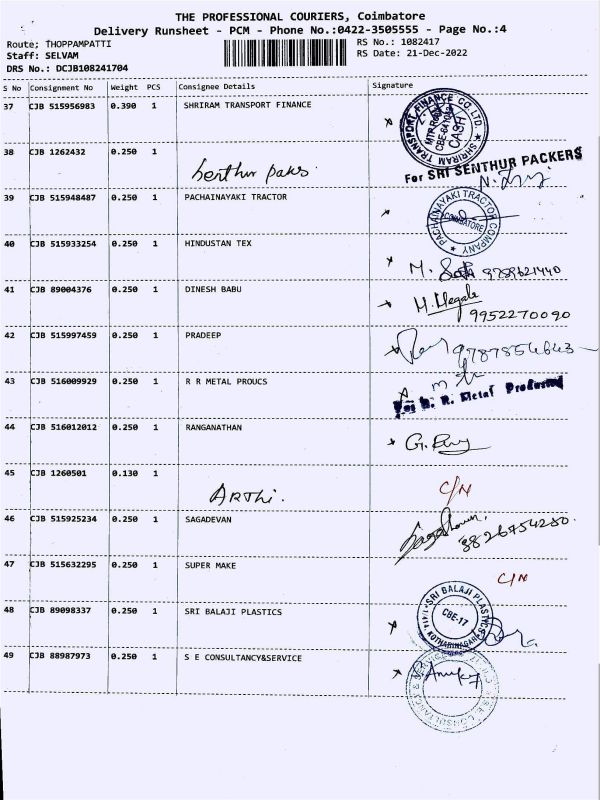 THE PROFESSIONAL COURIERS, Coimbatore
Delivery Runsheet - PCM - Phone No.:0422-3505555 - Page No.:4
Route; THOPPAMPATTI RS No.: 1082417
Staff: SELVAM RS Date: 21-Dec-2022
DRS No.: DCJB108241704
S No Consignment No Weight PCS Consignee Details Signature
37 CJB 515956983 0.390 1 SHRIRAM TRANSPORT FINANCE
SHRIRAM TRANSPORT FINANCE CO. LTD.
CASH
38 CJB 1262432 0.250 1
Senthur paks
For SRI SENTHUR PACKERS
39 CJB 515948487 0.250 1 PACHAINAYAKI TRACTOR
PACHAINAYAKI TRACTOR COMPANY
COIMBATORE
40 CJB 515933254 0.250 1 HINDUSTAN TEX
M. 9789621440
41 CJB 89004376 0.250 1 DINESH BABU
M. Megala
9952270090
42 CJB 515997459 0.250 1 PRADEEP
43 CJB 516009929 0.250 1 R R METAL PROUCS
For R. R. Metal Products
44 CJB 516012012 0.250 1 RANGANATHAN
45 CJB 1260501 0.130 1
ARTHI. C/N
46 CJB 515925234 0.250 1 SAGADEVAN
47 CJB 515632295 0.250 1 SUPER MAKE
C/N
48 CJB 89098337 0.250 1 SRI BALAJI PLASTICS
SRI BALAJI PLASTICS
CBE-17
49 CJB 88987973 0.250 1 S E CONSULTANCY&SERVICE